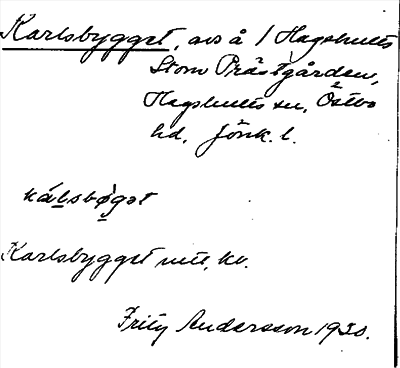 Karlsbygget, avs å 1 Hagshults
Stom Prästgården,
Hagshults sn, Östbo
hd, Jönk. l.
kálsbø̀gət
Karlsbygget nu, kv.
Fritz Andersson 1930.